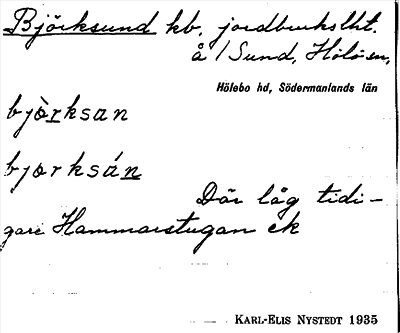 Björksund kb, jordbrukslht.
å 1 Sund, Hölö sn,
Hölebo hd, Södermanlands län
bjò̱rksan
bjorksá̱n
Där låg tidi-
gare Hammarstugan ek
KARL-ELIS NYSTEDT 1935